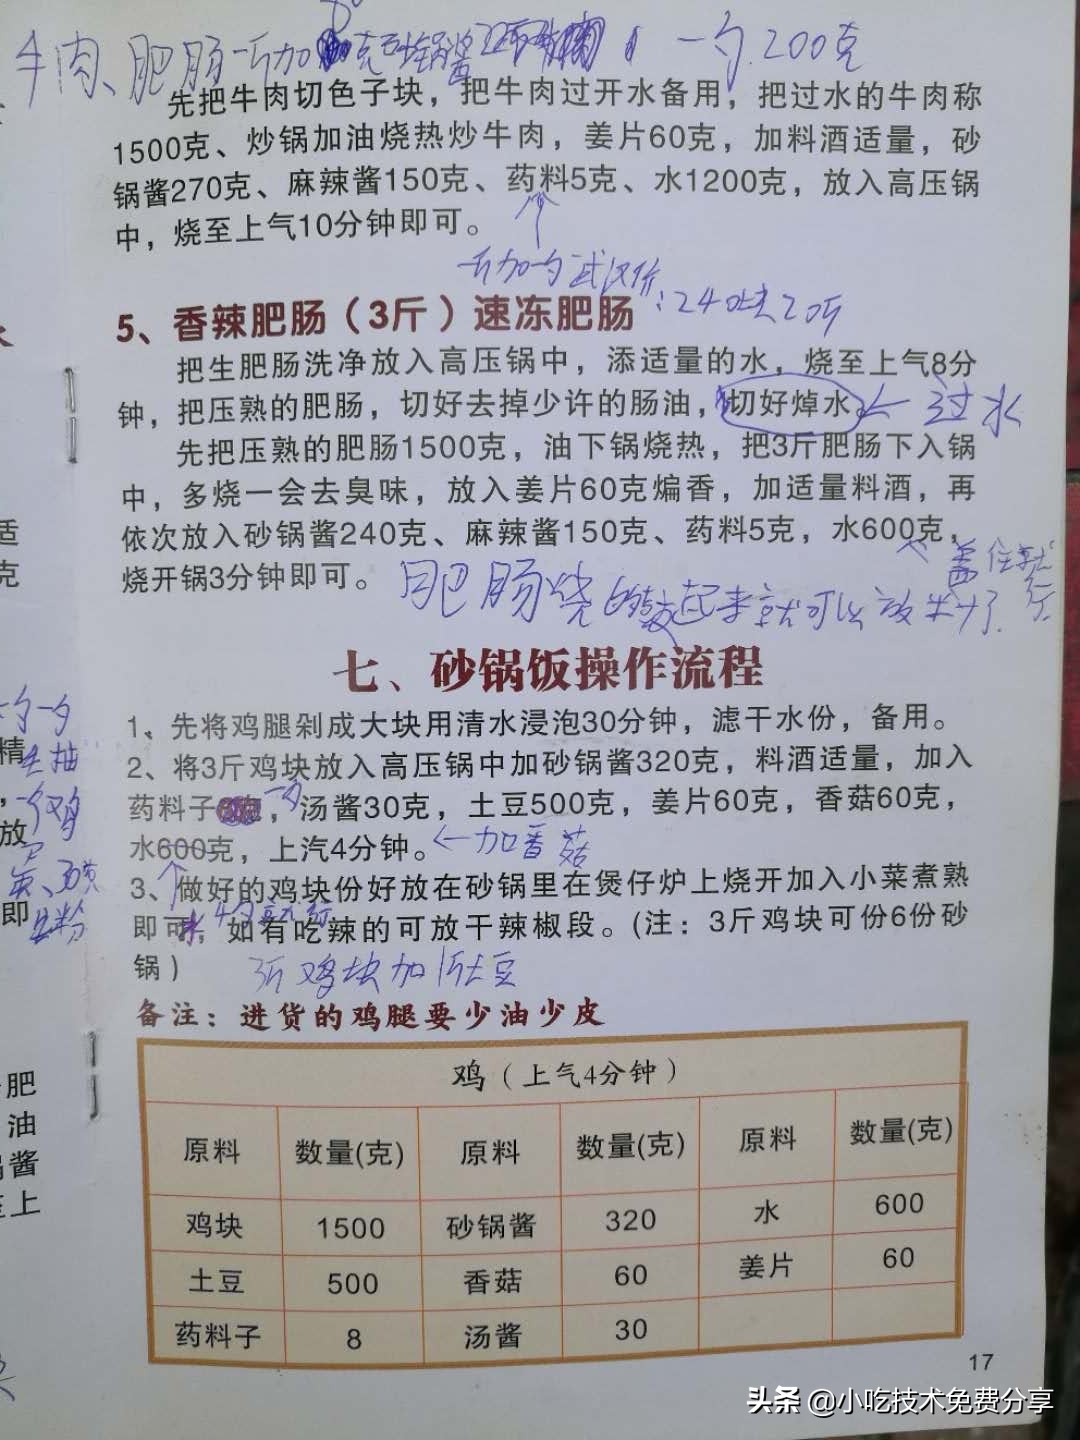 牛肉、肥肠一斤加 克砂锅酱 一勺.200克
先把牛肉切色子块，把牛肉过开水备用，把过水的牛肉称
1500克、炒锅加油烧热炒牛肉，姜片60克，加料酒适量，砂
锅酱270克、麻辣酱150克、药料5克、水1200克，放入高压锅
中，烧至上气10分钟即可。
一斤加勺 :24块2斤
5、香辣肥肠（3斤）速冻肥肠
把生肥肠洗净放入高压锅中，添适量的水，烧至上气8分
钟，把压熟的肥肠，切好去掉少许的肠油，切好焯水。←过水
先把压熟的肥肠1500克，油下锅烧热，把3斤肥肠下入锅
中，多烧一会去臭味，放入姜片60克煸香，加适量料酒，再
依次放入砂锅酱240克、麻辣酱150克、药料5克，水600克，
盖住就行
烧开锅3分钟即可。 肥肠烧的鼓起来就可以放 了.
七、砂锅饭操作流程
1、先将鸡腿剁成大块用清水浸泡30分钟，滤干水份，备用。
2、将3斤鸡块放入高压锅中加砂锅酱320克，料酒适量，加入
药料子 一勺，汤酱30克，土豆500克，姜片60克，香菇60克，
水600克，上汽4分钟。←加香菇
3、做好的鸡块份好放在砂锅里在煲仔炉上烧开加入小菜煮熟
水4勺就行
即可，如有吃辣的可放干辣椒段。(注：3斤鸡块可份6份砂
锅)
3斤鸡块加1斤土豆
备注：进货的鸡腿要少油少皮
鸡（上气4分钟）
原料 数量(克) 原料 数量(克) 原料 数量(克)
鸡块 1500 砂锅酱 320 水 600
土豆 500 香菇 60 姜片 60
药料子 8 汤酱 30
17
适
克
精
放
即
肥
油
酱
上
头条 @小吃技术免费分享